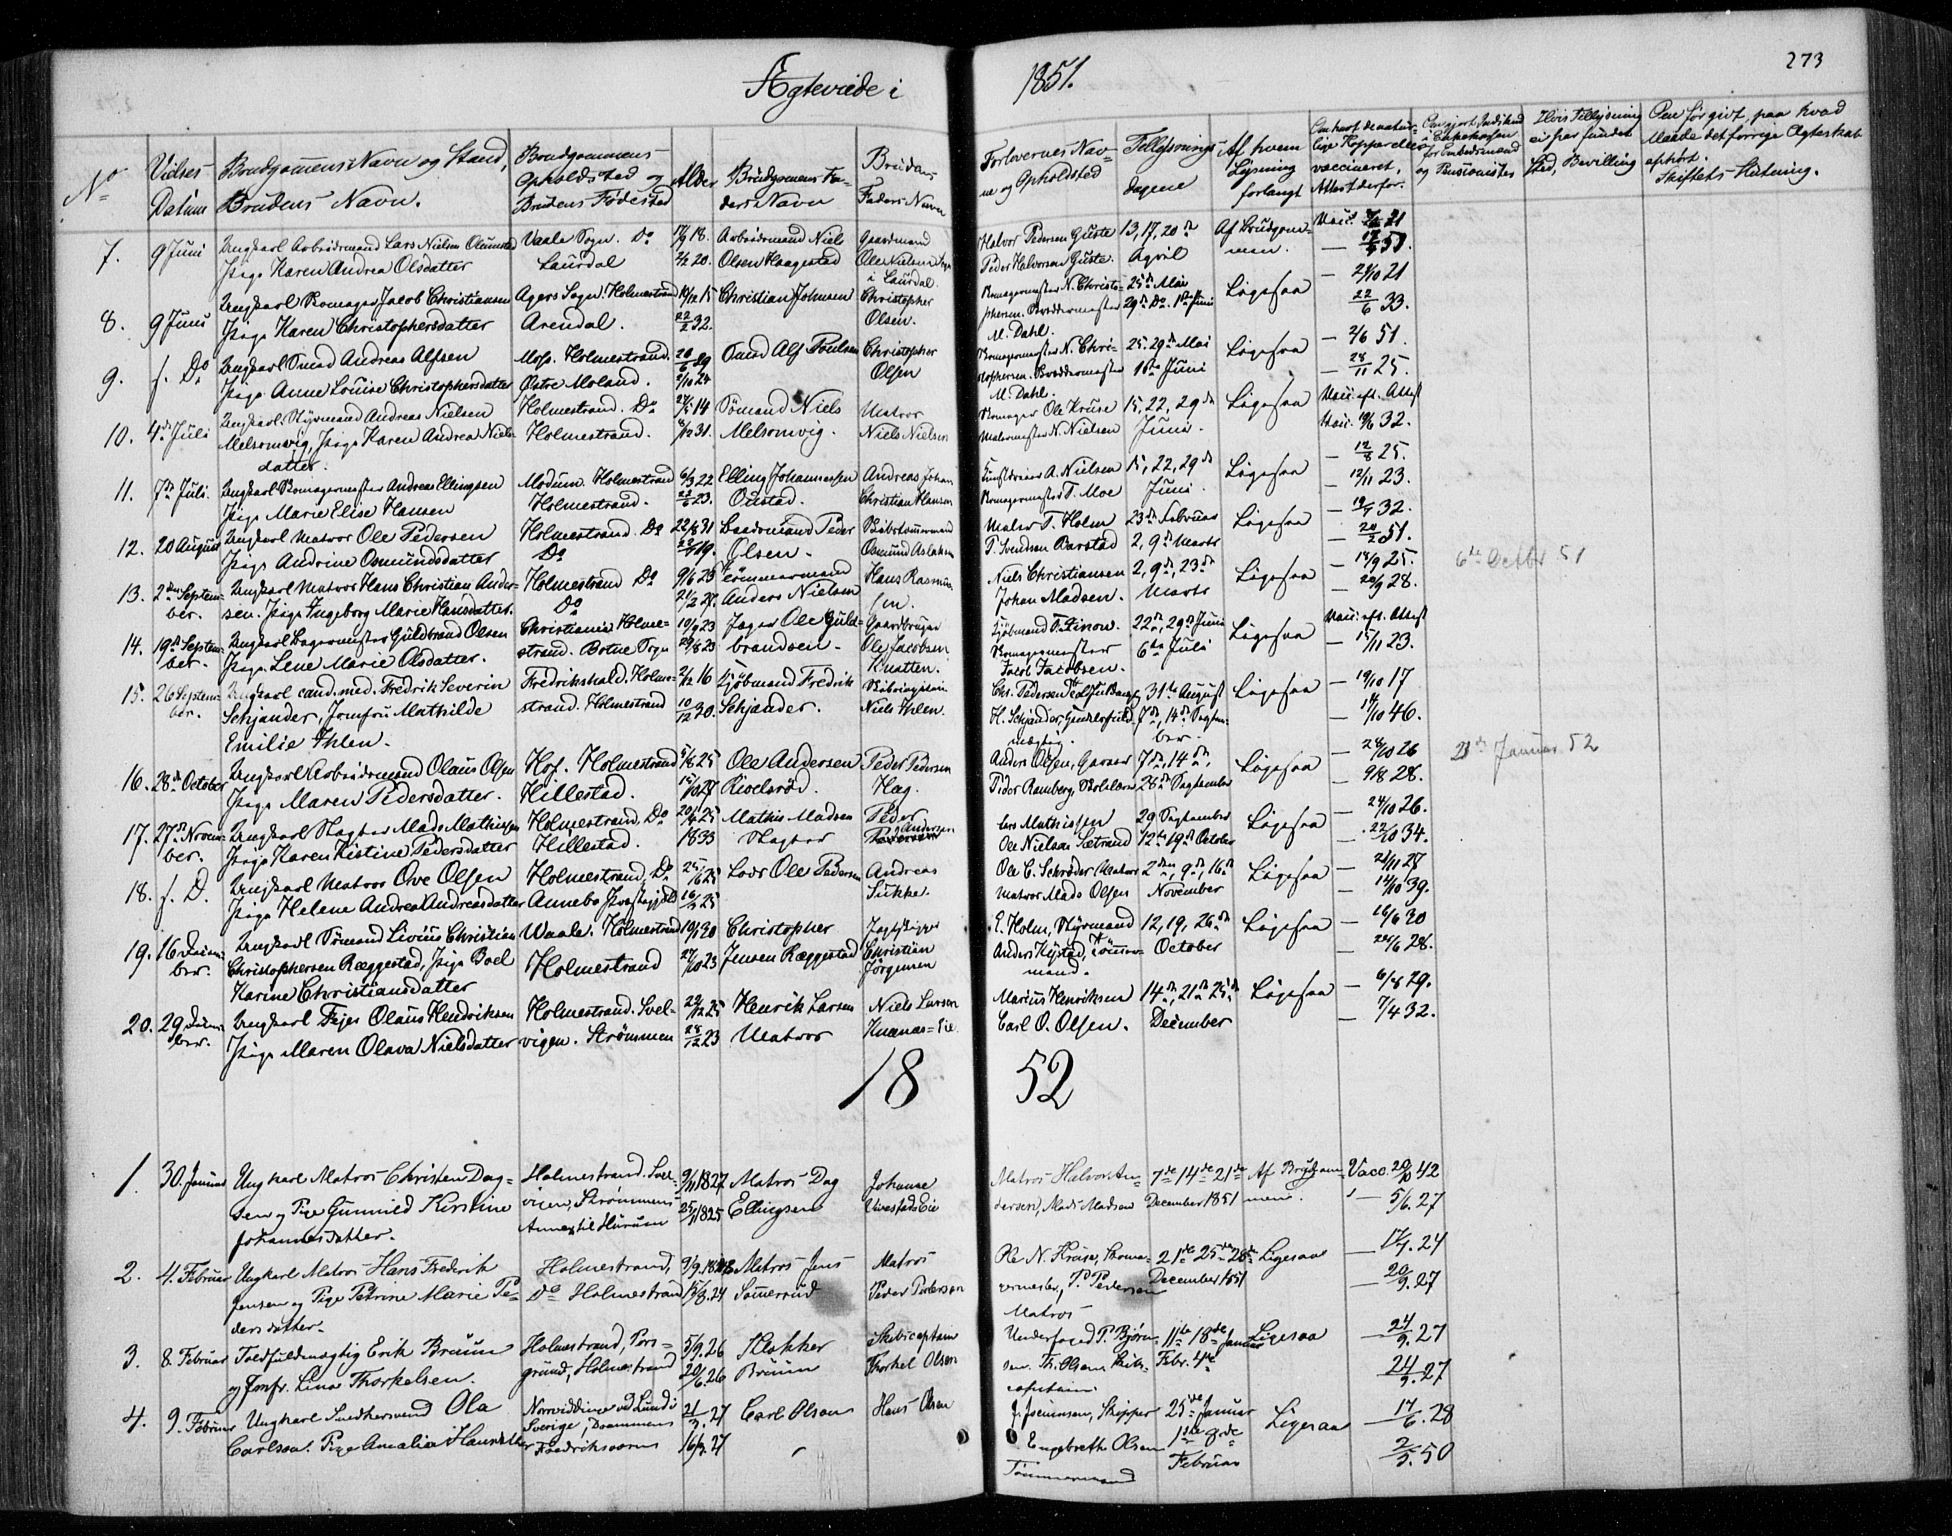 Ægteviede i 1851.
273
No
Vielses Datum
Brudgommens Navn og Stand, Brudens Navn.
Brudgommens Opholdsted og Brudens Fødested
Alder
Brudgommens Faders Navn
Brudens Faders Navn
Forlovernes Navne og Opholdsted
Tillysnings-dagene
Af hvem Lysning forlangt
Om havt de naturlige Kopper eller vaccineret, Attest derfor.
Hvis Tillysning ei har funden Sted, Bevilling
Om før gift, paa hvad Maade det forrige Ægteskab ophørt. Skiftets Slutning.
7. 9 Juni Ungkarl Arbeidsmand Lars Nielsen
Pige Karen Andrea Olsdatter
Vaale Sogn. Do
Laurdal
17/9 18.
2/12 20.
Arbeidsmand Niels
Olsen Haagestad
Gaardmand
Ole Nielsen
i Laurdal
Halvor Pedersen Guste
Peder Halvorsen Guste.
13, 17, 20de
April
Af Brudgommen.
8. 9 Juni Ungkarl Skomager Jacob Christiansen
Pige Karen Christophersdatter
Agers Sogn. Holmestrand
Arendal.
22/2 32.
Christian Johnsen
Christopher
Olsen.
Skomagermester N. Christophersen
M. Dahl.
25de Mai
29de Do. 1ste Juni
Ligesaa
— 29/10 21
22/6 33.
9. f. Do Ungkarl Smed Andreas Alfsen
Pige Anne Louise Christophersdatter
Moss. Holmestrand.
Østre Moland.
9/10 24
Smed Alf Poulsen
Christopher
Olsen
Skomagermester N. Christophersen
M. Dahl.
25. 29de Mai
1ste Juni
Ligesaa
— 2/6 51.
— 28/11 25.
10. 4de Juli Ungkarl Styrmand Andreas Nielsen
Melsomvig, Pige Karen Andrea Nielsdatter.
Holmestrand. Do
Holmestrand.
Sømand Niels
Melsomvig.
Matros
Niels Nielsen
Skomager Ole Kruse
Malermester N. Nielsen
15, 22, 29de
Juni.
Ligesaa
Vacc. eft. Attest
11. 7de Juli. Ungkarl Skomagermester Andreas Ellingsen
Pige Marie Elise Hansen
Modum. Holmestrand
Holmestrand.
6/3 22
Elling Johannessen
Andreas Johan
Christian Hansen
A. Nielsen
Skomagermester T. Moe
15, 22, 29de
Juni.
Ligesaa
— 12/8 25.
— 12/11 23.
12. 20 August Ungkarl Matros Ole Pedersen
Pige Andrine Osmundsdatter
Holmestrand. Do
Do
22/8 31
Gaardmand Peder
Olsen.
Skibstømmermand
Osmund Aslaksen
Maler T. Holm
T. Svendsen Barstad
23de Februar
2, 9de Marts
Ligesaa
— 19/7 32.
— 20/2 51.
13. 2den September. Ungkarl Matros Hans Christian Andersen.
Pige Ingeborg Marie Hansdatter.
Holmestrand Do
Do
9/6 23
21/2 27.
Tømmermand
Anders Nielsen
Hans Rasmussen.
Niels Christiansen
Johan Madsen.
2, 9de, 23de
Marts
Ligesaa
— 18/9 25.
— 20/9 28.
6te Octbr 51
14. 19de September. Ungkarl Bagermester Guldbrand Olsen
Pige Lene Marie Olsdatter.
Christiania Holmestrand.
Botne Sogn
10/9 23
29/8 23
Jæger Ole Guldbrandsen.
Gaardbruger
Ole Jacobsen
Knatten.
Kjøbmand T. Linow.
Skomagermester
Jacob Jacobsen.
22de, 29de Juni
6te Juli
Ligesaa
Vacc. eft. Attest
— 15/11 23.
15. 26 September. Ungkarl cand. med. Fredrik Severin
Schjander, Jomfru Mathilde
Emilie Ihlen.
Fredrikshald. Holmestrand.
Holmestrand
2/12 16
10/12 30.
Kjøbmand Fredrik
Schjander.
Niels Ihlen.
Chr. Pedersen
H. Schjander
31te August
7de, 14de September.
Ligesaa
— 19/10 17
— 14/10 46.
16. 28de October Ungkarl Arbeidsmand Olaus Olsen
Pige Maren Pedersdatter.
Hof. Holmestrand
Hillestad.
5/8 25
Ole Andersen
Peder Pedersen
Hag.
Anders Olsen, Garver
Peder Ramberg, Skolelærer
7de, 14de,
28de September
Ligesaa
— 28/10 26
— 9/8 28.
23de Januar 52
17. 27de November. Ungkarl Slagter Mads Mathisen
Pige Karen Kistine Pedersdatter
Holmestrand, Do
Hillestad.
20/4 25
1833
Mathis Madsen
Slagter
Peder
Andersen
Lars Mathissen
Ole Nielsen Sætrand
29 September
12te 19de October
Ligesaa
— 24/10 26.
22/10 34.
18. f. D. Ungkarl Matros Ove Olsen
Pige Helene Andrea Andreasdatter
Holmestrand, Do
Annebo Præstegjeld
25/6 25
Lods Ole Pedersen
Andreas
Sukke.
Ole C. Schrøder Matros
Matros Mads Olsen
2den, 9de, 16de
November
Ligesaa
— 21/11 27
— 14/10 39.
19. 16 December. Ungkarl Sømand Livius Christian
Christophersen Ræggestad, Pige Boel
Karine Christiansdatter
Waale. Holmestrand
Holmestrand
24/10 23
Christopher
Jensen Ræggestad
Christian
Jørgensen
E. Holm, Styrmand
Anders Kystad, Tømmermand.
12, 19, 26de
October
Ligesaa
— 16/6 30
— 20/6 28.
20. 29 December. Ungkarl Fejer Olaus Hendriksen
Pige Maren Olava Nielsdatter
Holmestrand. Svelvigen.
Strømmen
22/12 25
28/12 23
Henrik Larsen
Matros
Niels Larsen
Knanas-Eie.
Marius Henriksen
Carl O. Olsen.
14de, 21de 25de
December
Ligesaa
— 6/8 29.
— 7/4 32.
1852
1. 30. Januar Ungkarl Matros Christen Dagsen
og Pige Gunnild Kirstine
Johannesdatter.
Holmestrand. Svelvigen,
Strømmens
Annex til Hurum
9/11 1827
25/9 1825
Matros Dag
Ellingsen
Johannes
Vivestads Eie
Matros Halvor Andersen,
Mads Madsen
7de 14de 21de
December 1851
Af Brudgommen.
Vacc. 20/10 42
— 5/6. 27
2. 4. Februar Ungkarl Matros Hans Frederik
Jensen og Pige Petrine Marie Pedersdatter.
Holmestrand,
Do Holmestrand
15/8. 24
Matros Jens
Sommerud
Matros
Peder Pedersen
Ole N. Kruse, Skomagermester,
P. Pedersen
Matros
21de 25de 28de
December 1851
Ligesaa
— 17/9. 24
— 20/9. 27
3. 8. Februar Toldfuldmægtig Erik Bruun
og Jomfr. Lina Thorkelsen.
Holmestrand, Porsgrund,
Holmestrand
5/9. 26
20/6. 26
Klokker
Bruun
Skibscaptain
Thorkel Olsen
Underfoged P. Bjørnsen.
Th. Olsen, Skibscaptain.
11te 18de Januar
Febr. 4de
Ligesaa
— 24/9. 27
24/9. 27
4. 9. Februar Ungkarl Snedkersvend Ola
Carlson. Pige Amalia Hansdatter
Norrviddinge ved Lund i
Sverige, Drammen
Fredriksværn
21/3. 27
16/3. 27
Carl Olson
Hans Olsen
J. Joenssen, Skipper
Engebreth Olsen
Tømmermand
25de Januar
1ste 8de
Februar
Ligesaa
— 17/6. 28
2/5. 50